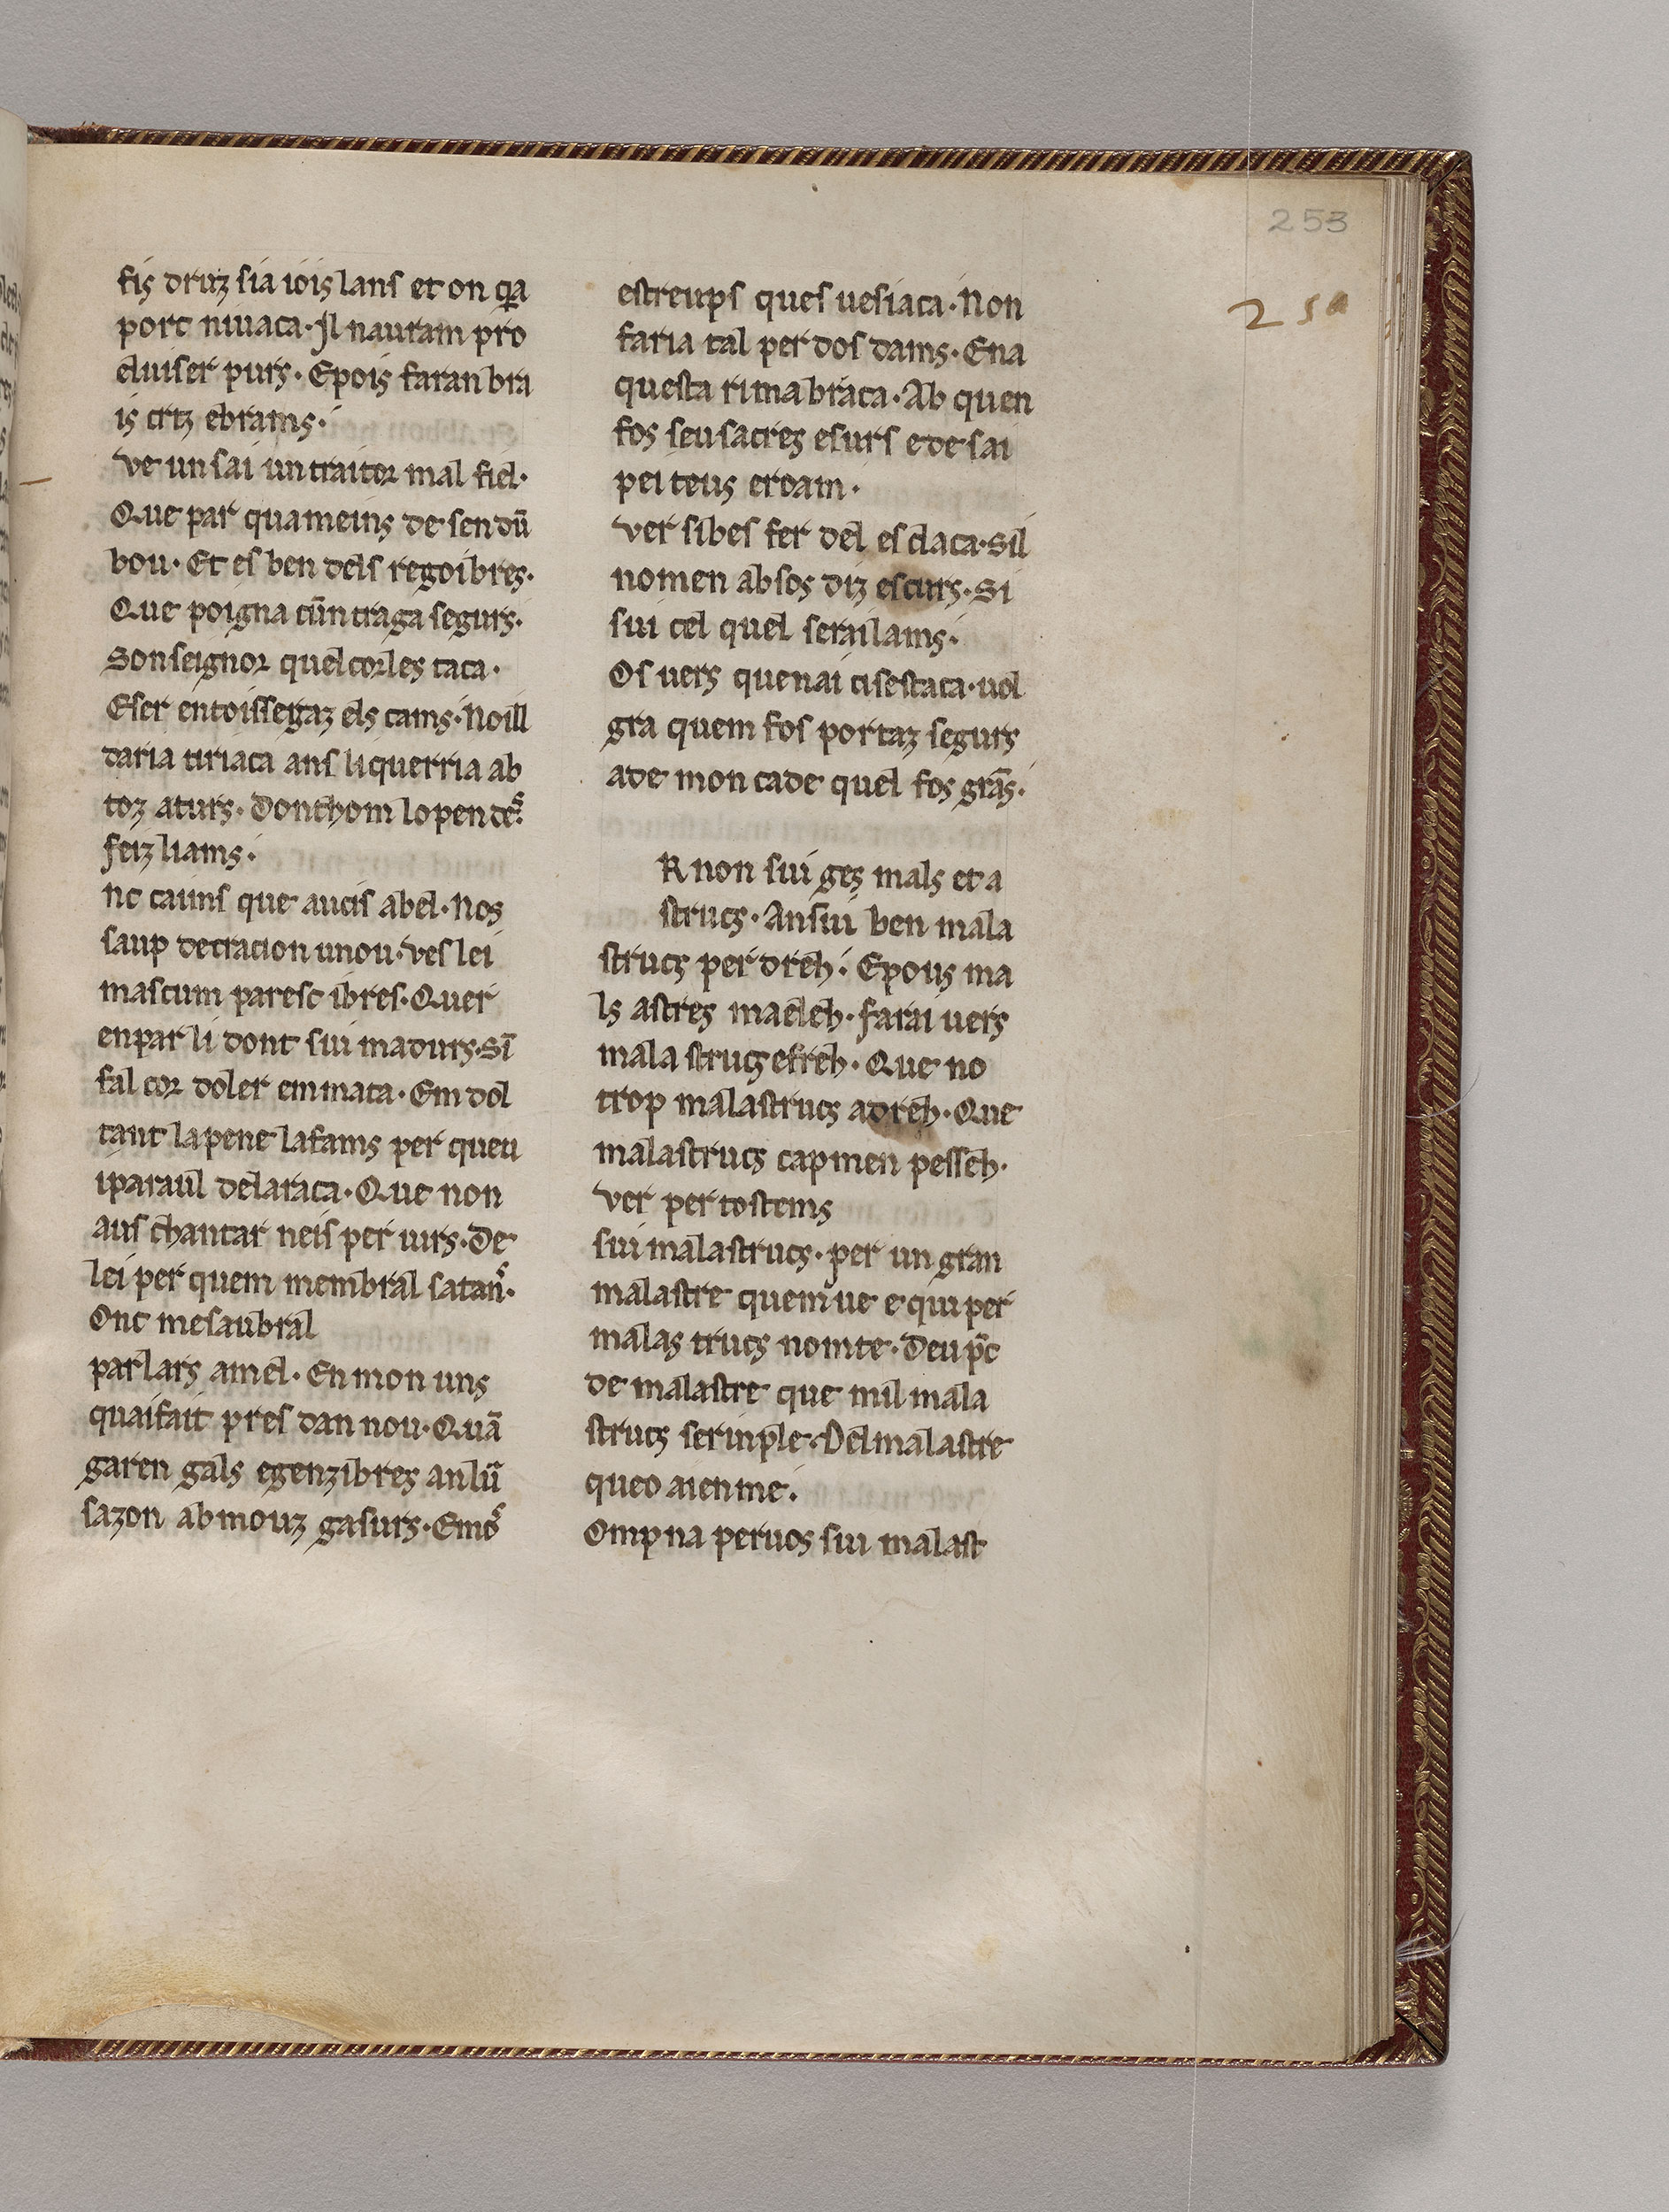 253
250
fis druz sia iois lans et on qͣ
port niuaca. Il nauram pro
eluiser purs. Epois faran bra
is critz ebrams.
ve un sai un traitor mal fiel.
Que par quameins de sen dū
bou. Et es ben dels regoibres.
Que poigna cūn traga segurs.
Son seignor quel cor les taca.
Eser entoissegaz els cams. Noill
daria tiriaca ans li querria ab
toz aturs. Donthom lo pendes
feiz liams.
nc caiins que aucis abel. Nos
saup detracion unou. ves lei
mascum paresc ibres. Quer
enpar li dont sui madurs. Si
fal cor doler em mata. Em dol
tant la pene lafams per queu
iparaul delaraca. Que non
aus chantar neis per iurs. De
lei per quem membral satan.
Onc mesaubral
parlars amel. En mon uns
quaifait pres dan nou. Quā
garen gals egenzibres anlū
sazon ab mouz gasurs. Emo
estreups ques uesiaca. Non
faria tal per dos dams. Ena
questa rima braca. Ab quen
fos seu sacres esurs e de sai
peiteus erdam.
ver sibes fer del esclaca. Sil
nomen absos diz escurs. Si
sui cel quel serailams.
Os uers quenai cisestaca. uol
gra quem fos portaz segurs
ade moncade quel fos grās.
R non sui ges mals et a
strucs. An sui ben mala
strucs per dreh. Epous ma
ls astres maeleh. farai uers
mala strucs efreh. Que no
trop malastrucs adreh. Que
malastrucs cap men pesseh.
ver per tostems
sui malastrucs. per un gran
malastre quem ue e qui per
malas trucs nomte. Deu pͣc
de malastre que mil mala
strucs serinple. Del malastre
queo aienme.
Ompna peruos sui malast